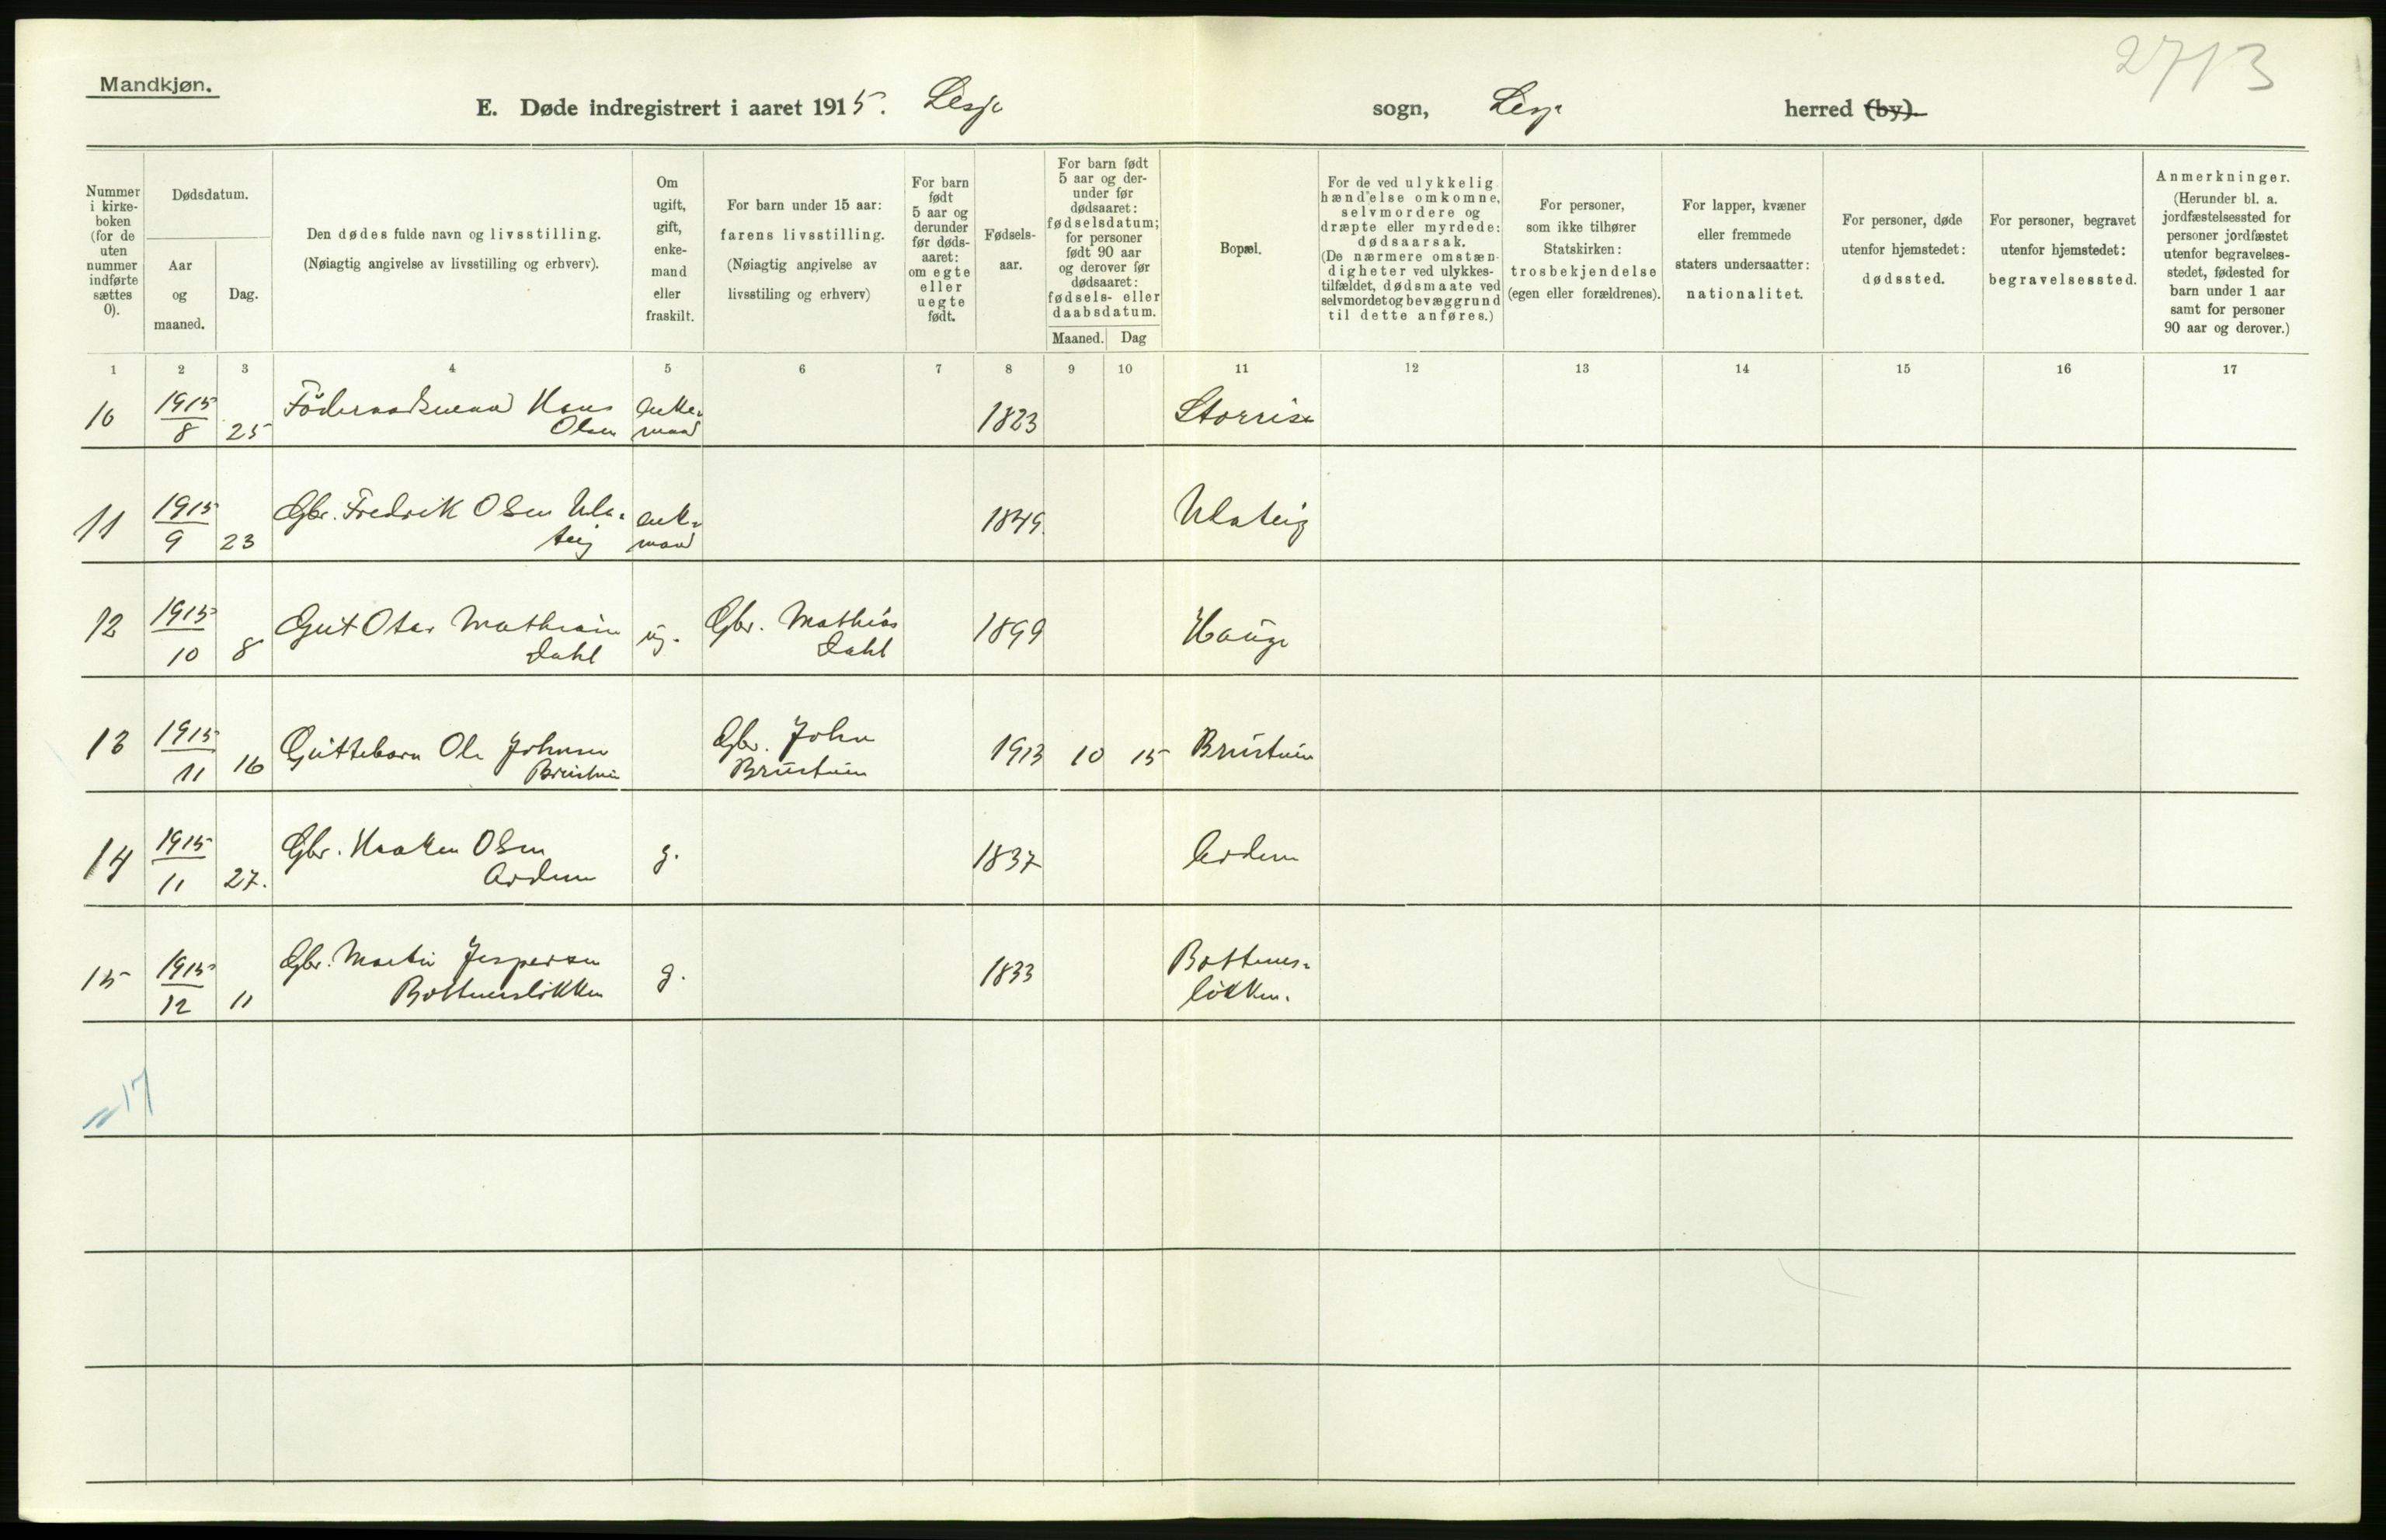 2713
Mandkjøn.
E. Døde indregistrert i aaret 1915. Lesje sogn, Lesje herred (by).
Nummer
i kirke-
boken
(for de
uten
nummer
indførte
sættes
0).
Dødsdatum.
Aar
og
maaned.
Dag.
Den dødes fulde navn og livsstilling.
(Nøiagtig angivelse av livsstilling og erhverv).
Om
ugift,
gift,
enke-
mand
eller
fraskilt.
For barn under 15 aar:
farens livsstilling.
(Nøiagtig angivelse av
livsstiling og erhverv)
For barn
født
5 aar og
derunder
før døds-
aaret:
om egte
eller
uegte
født.
Fødsels-
aar.
For barn født
5 aar og der-
under før
dødsaaret:
fødselsdatum;
for personer
født 90 aar
og derover før
dødsaaret:
fødsels- eller
daabsdatum.
Maaned. Dag
Bopæl.
For de ved ulykkelig
hændelse omkomne,
selvmordere og
dræpte eller myrdede:
dødsaarsak.
(De nærmere omstæn-
digheter ved ulykkes-
tilfældet, dødsmaate ved
selvmordet og bevæggrund
til dette anføres.)
For personer,
som ikke tilhører
Statskirken:
trosbekjendelse
(egen eller forældrenes).
For lapper, kvæner
eller fremmede
staters undersaatter:
nationalitet.
For personer, døde
utenfor hjemstedet:
dødssted.
For personer, begravet
utenfor hjemstedet:
begravelsessted.
Anmerkninger.
(Herunder bl. a.
jordfæstelsessted for
personer jordfæstet
utenfor begravelses-
stedet, fødested for
barn under 1 aar
samt for personer
90 aar og derover.)
1 2 3 4 5 6 7 8 9 10 11 12 13 14 15 16 17
10 1915 Föderaadsmand Hans enke- 1823 Storrise
8 25 Olsen mand
11 1915 Gbr. Fredrik Olsen Ula- enke- 1849. Ulateig
9 23 teig mand
12 1915 Gut Otar Mathias ug. Gbr. Mathias 1899 Hauge
10 8 Dahl Dahl
13 1915 Guttebarn Ole Johnsen Gbr. John 1913 10 15 Brustuin
11 16 Brustuin Brustuin
14 1915 Gbr. Haaken Olsen g. 1837 Ardem
11 27. Ardem
15 1915 Gbr. Martin Jespersen g. 1833 Bottmes-
12 11 Bottmesløkken løkken.
17